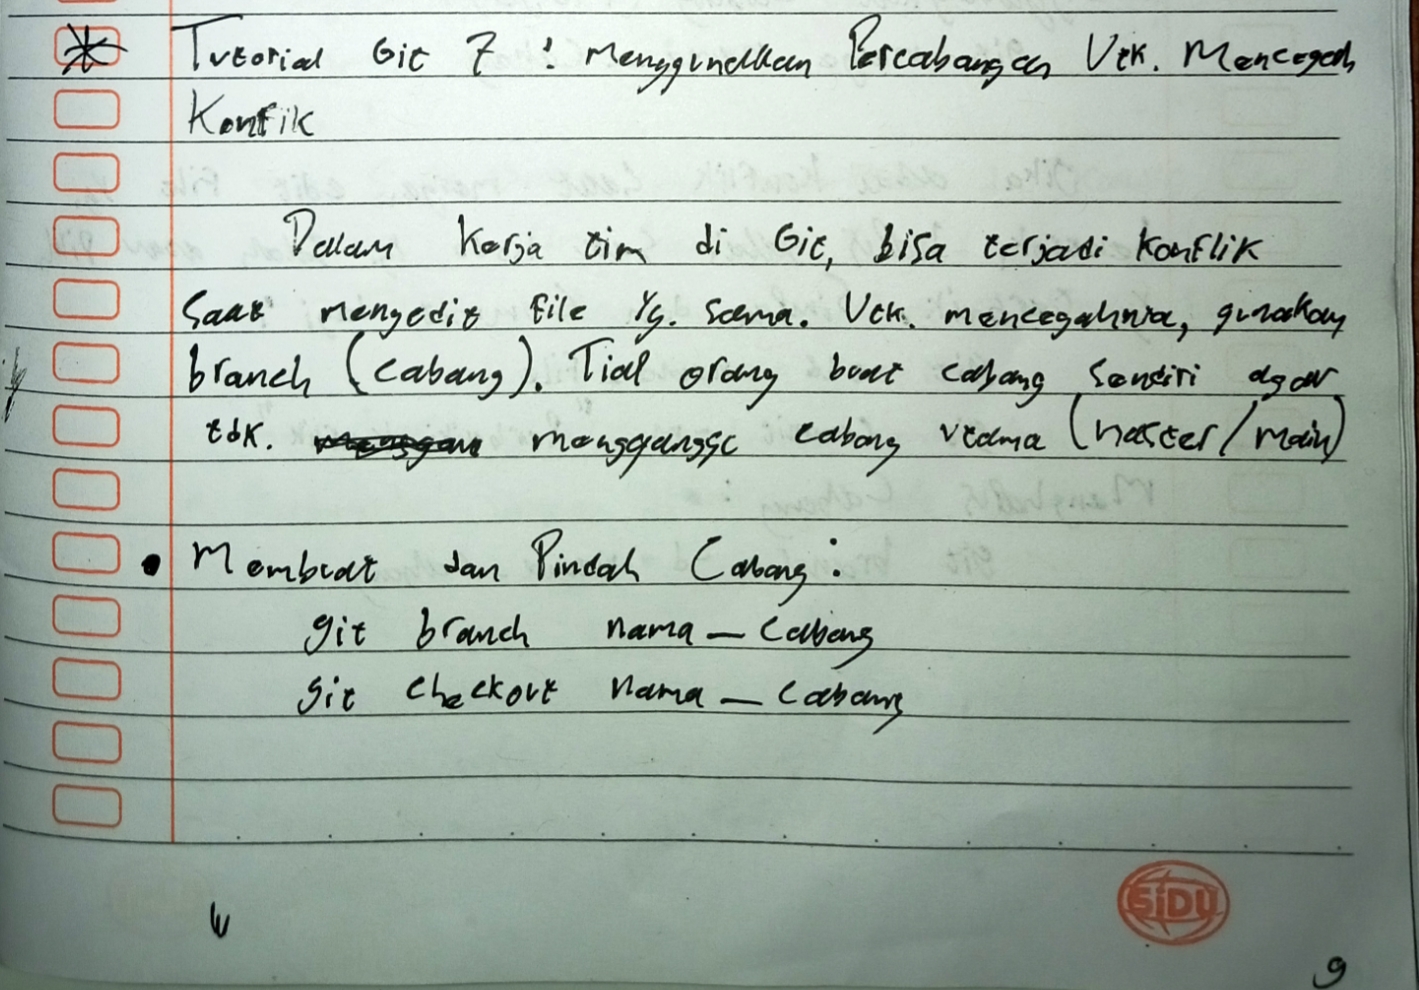 Tutorial Git 7 : Menggunakan Percabangan Utk. Mencegah
Konfik
Dalam Kerja tim di Git, bisa terjadi Konflik
Saat mengedit file yg. sama. Utk. mencegahnya, gunakan
branch (cabang). Tial orang buat cabang sendiri agar
tdk. mengganggu cabang utama (master/main)
• Membuat dan Pindah Cabang :
git branch nama_cabang
git checkout nama_cabang
SiDU
9